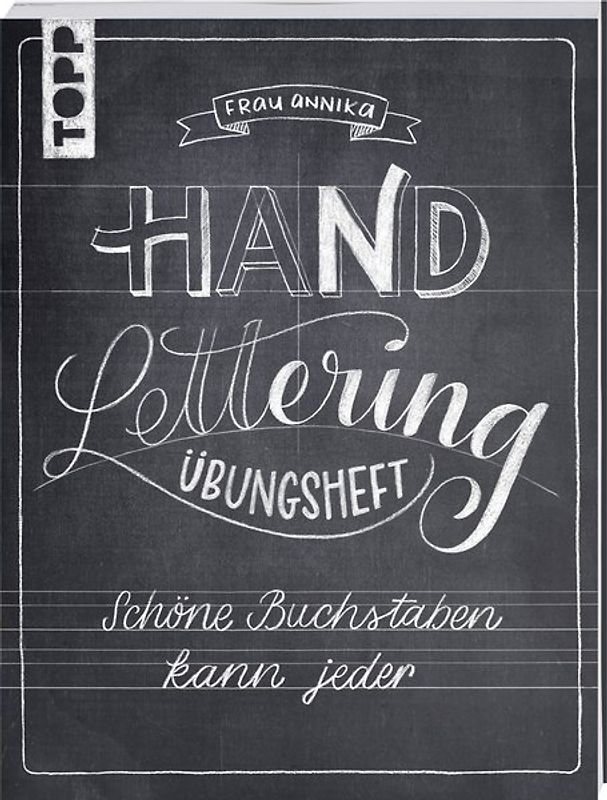 TOPP
FRAU ANNIKA
HAND
Lettering
ÜBUNGSHEFT
Schöne Buchstaben
kann jeder